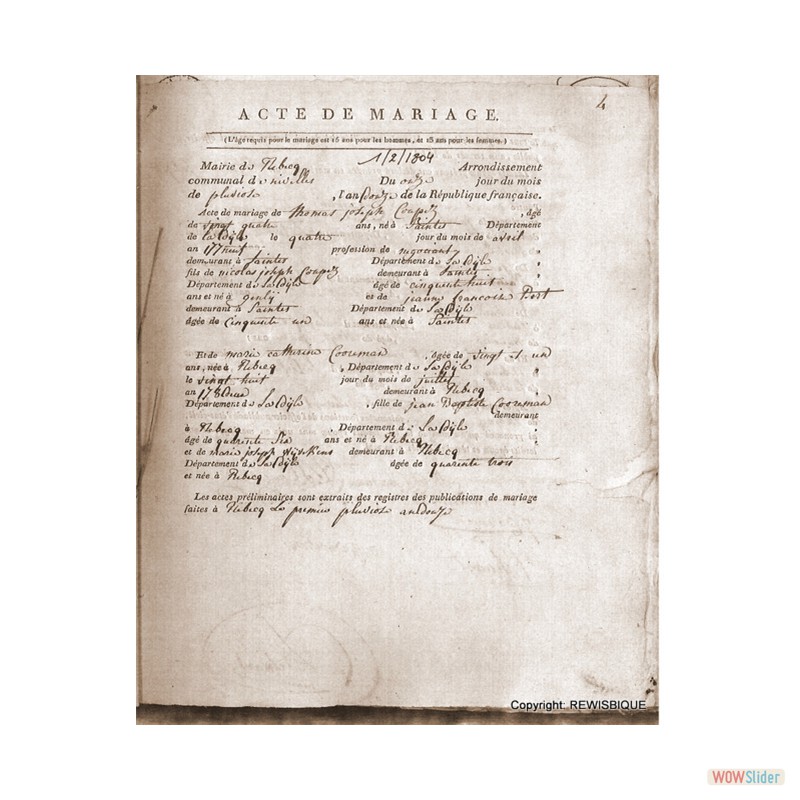 4
ACTE DE MARIAGE.
(L'âge requis pour le mariage est 15 ans pour les hommes, et 13 ans pour les femmes.)
1/2/1804
Mairie de Rebecq Arrondissement
communal de nivelles Du onze jour du mois
de pluviose , l'an douze de la République française.
Acte de mariage de thomas joseph , âgé
de vingt quatre ans, né à Saintes Département
de la Dyle le quatre jour du mois de avril
an profession de negociant
demeurant à Saintes Département de La Dyle ,
fils de nicolas joseph demeurant à Saintes ,
Département de La Dyle âgé de cinquante huit
ans et né à et de jeanne francoise
demeurant à Saintes Département de La Dyle
âgée de Cinquante un ans et née à Saintes
Et de marie catherine Cooreman , âgée de vingt et un
ans, née à Rebecq , Département de La Dyle
le vingt huit jour du mois de juillet ,
an demeurant à Rebecq
Département de La Dyle , fille de jean Baptiste Cooreman
demeurant
à Rebecq , Département de La Dyle
âgé de quarante Six ans et né à Rebecq ,
et de marie joseph demeurant à Rebecq
Département de La Dyle âgée de quarante trois
et née à Rebecq
Les actes préliminaires sont extraits des registres des publications de mariage
faites à Rebecq Le premier pluviose an douze
Copyright: REWISBIQUE
WOWSlider